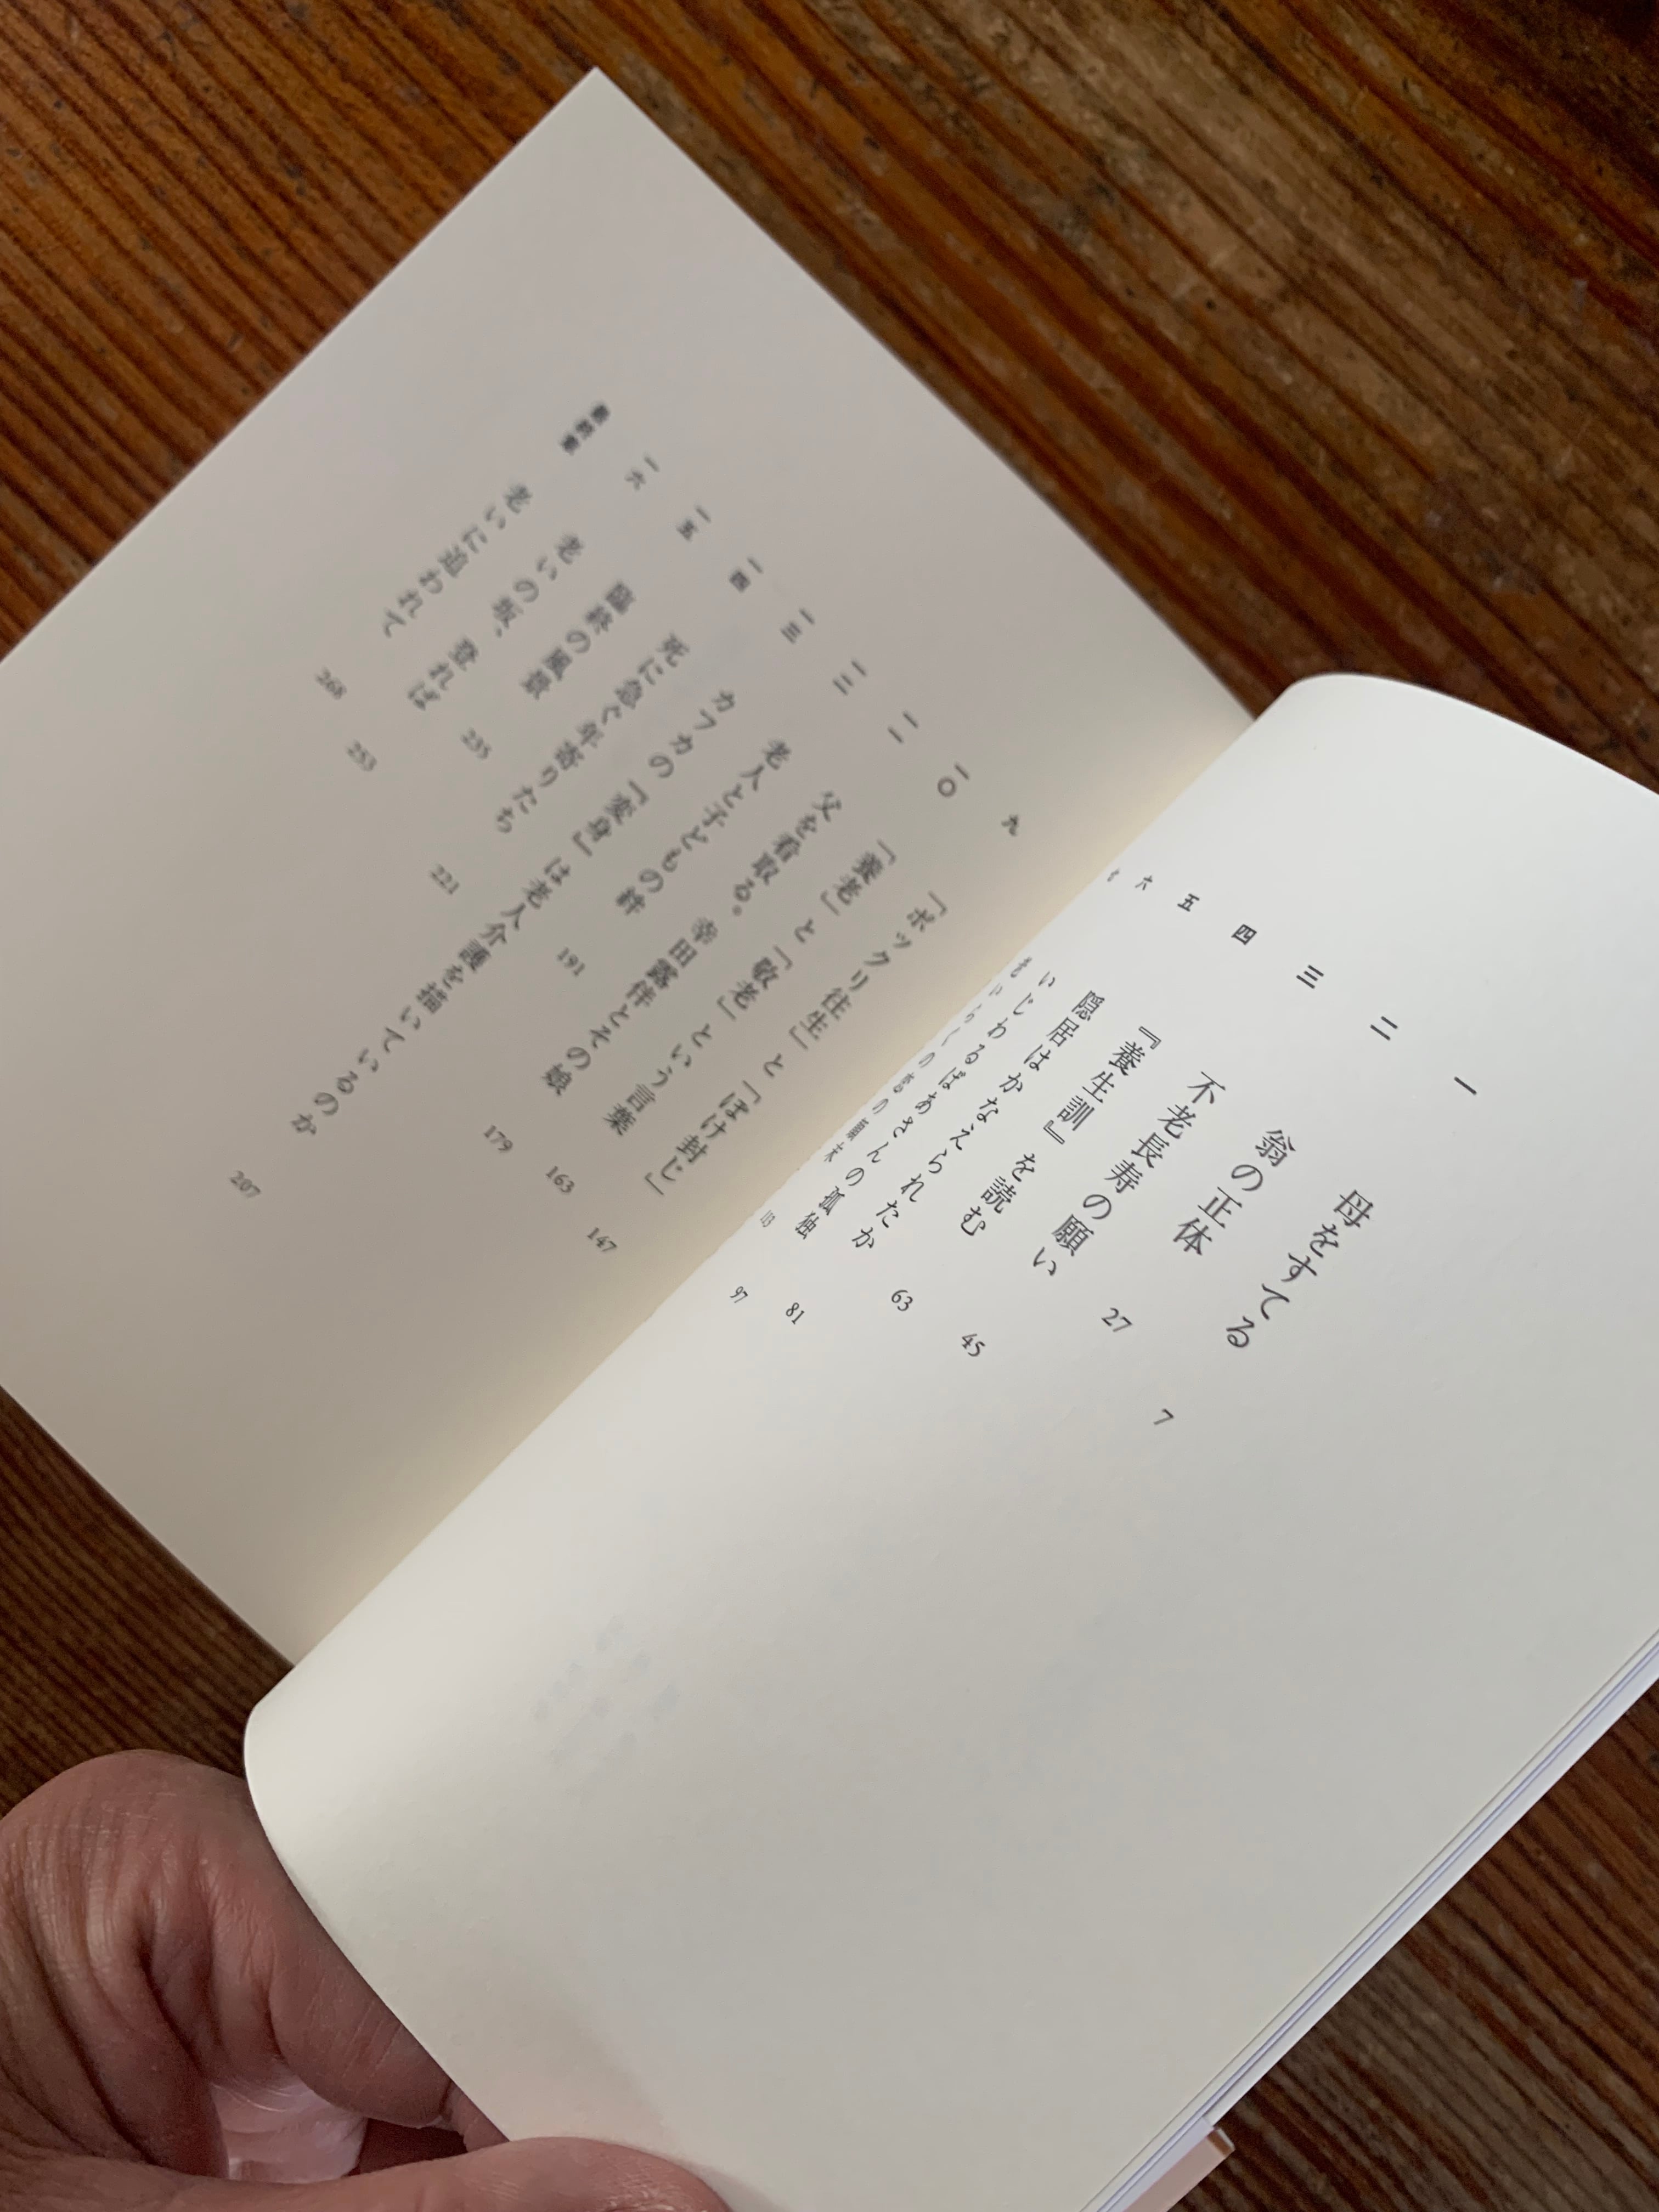 一 母をすてる 7
二 翁の正体 27
三 不老長寿の願い 45
四 『養生訓』を読む 63
五 隠居はかなえられたか 81
六 いじわるばあさんの孤独 97
七 老いらくの恋の顛末 113
九 「ポックリ往生」と「ぼけ封じ」 147
一〇 「養老」と「敬老」という言葉 163
一一 父を看取る。幸田露伴とその娘 179
一二 老人と子どもの絆 191
一三 カフカの「変身」は老人介護を描いているのか 207
一四 死に急ぐ年寄りたち 221
一五 臨終の風景 235
一六 老いの坂、登れば 253
最終章 老いに追われて 268